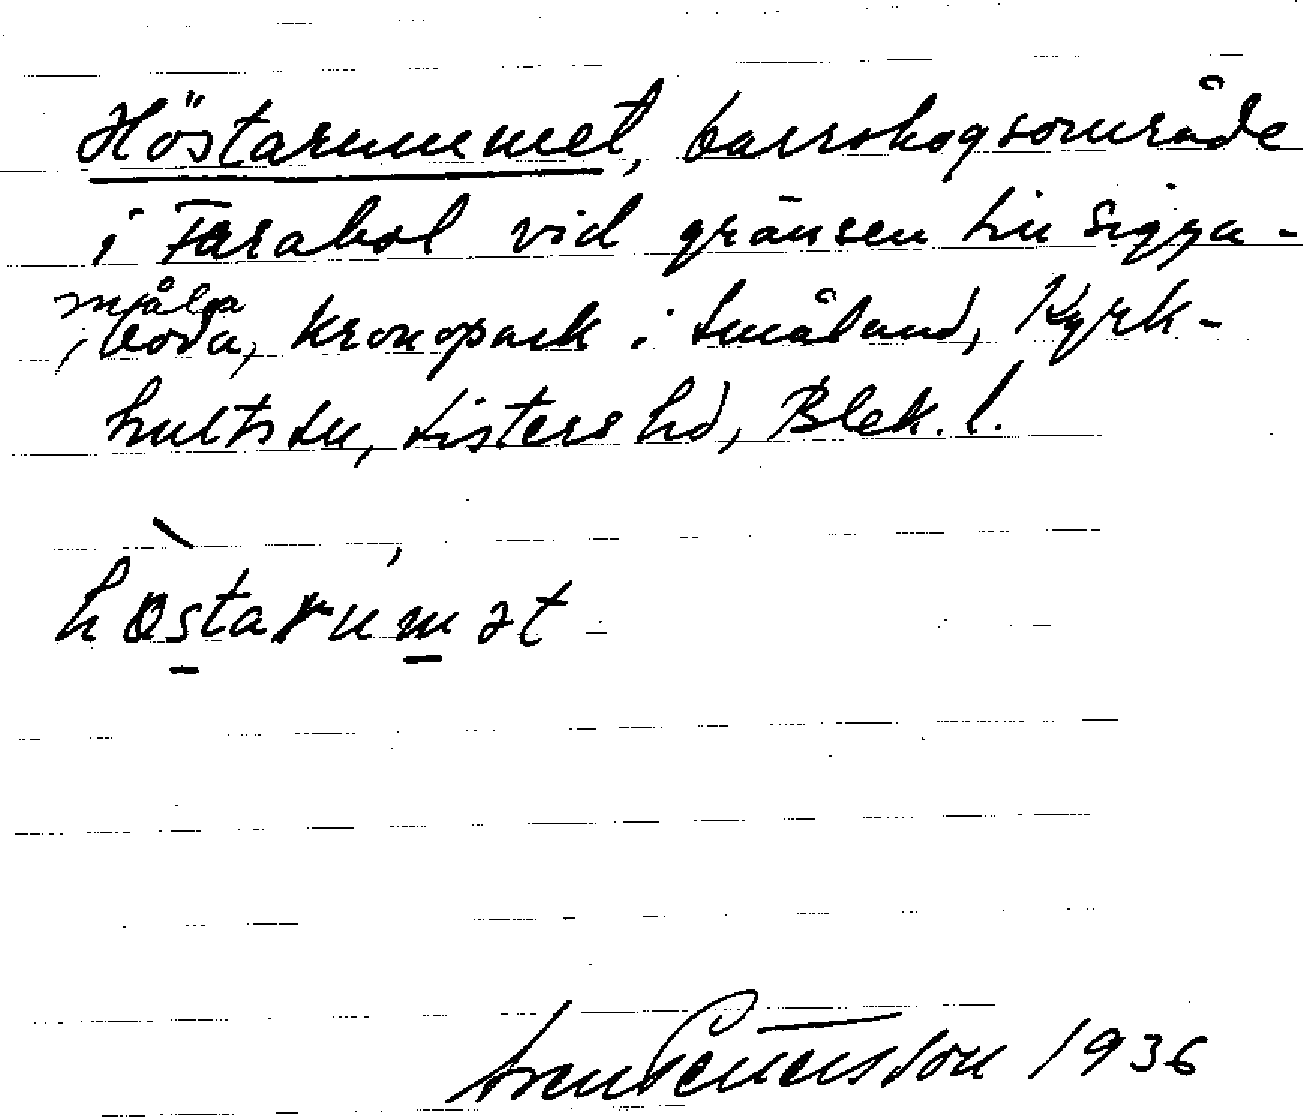 Höstarummet, barrskogsområde
i Farabol vid gränsen till Sigga-
måla
i, boda, kronopark i Småland, Kyrk-
hults sn, Listers hd, Blek. l.
hǫstarumət
Sven Pettersson 1936